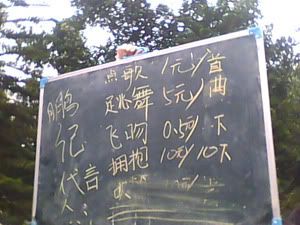 点歌 1元/首
跳舞 5元/曲
飞吻 0.5元/下
拥抱 10元/10下
鹏
记
代言